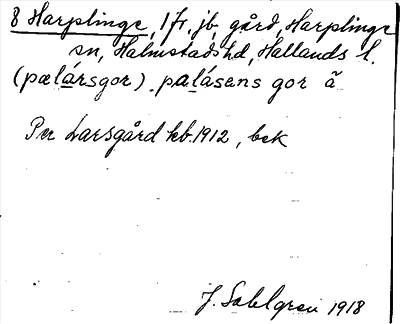 8 Harplinge, 1 fr, jb, gård, Harplinge
sn, Halmstads hd, Hallands l.
(pælársgor) . palásens gor ã
Per Larsgård kb. 1912, bek
J. Sahlgren 1918